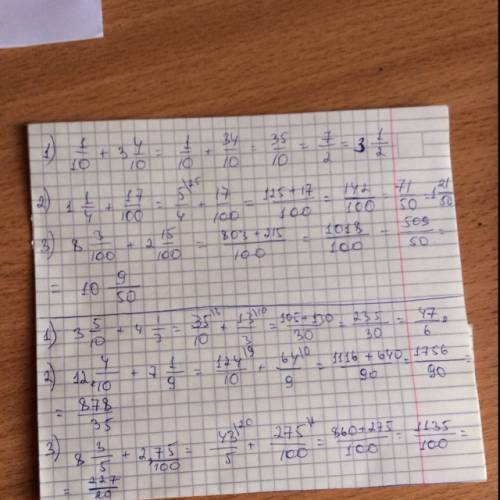 1) 1/10 + 3 4/10 = 1/10 + 34/10 = 35/10 = 7/2 = 3 1/2
2) 1 1/4 + 17/100 = 5\25/4 + 17/100 = 125+17/100 = 142/100 = 71/50 = 1 21/50
3) 8 3/100 + 2 15/100 = 803+215/100 = 1018/100 = 509/50 =
= 10 9/50
1) 3 5/10 + 4 1/3 = 35\3/10 + 13\10/3 = 105+130/30 = 235/30 = 47/6
2) 12 4/10 + 7 1/9 = 124\9/10 + 64\10/9 = 1116+640/90 = 1756/90 =
= 878/35
3) 8 3/5 + 2,75/100 = 43\20/5 + 275/100 = 860+275/100 = 1135/100 =
= 227/20